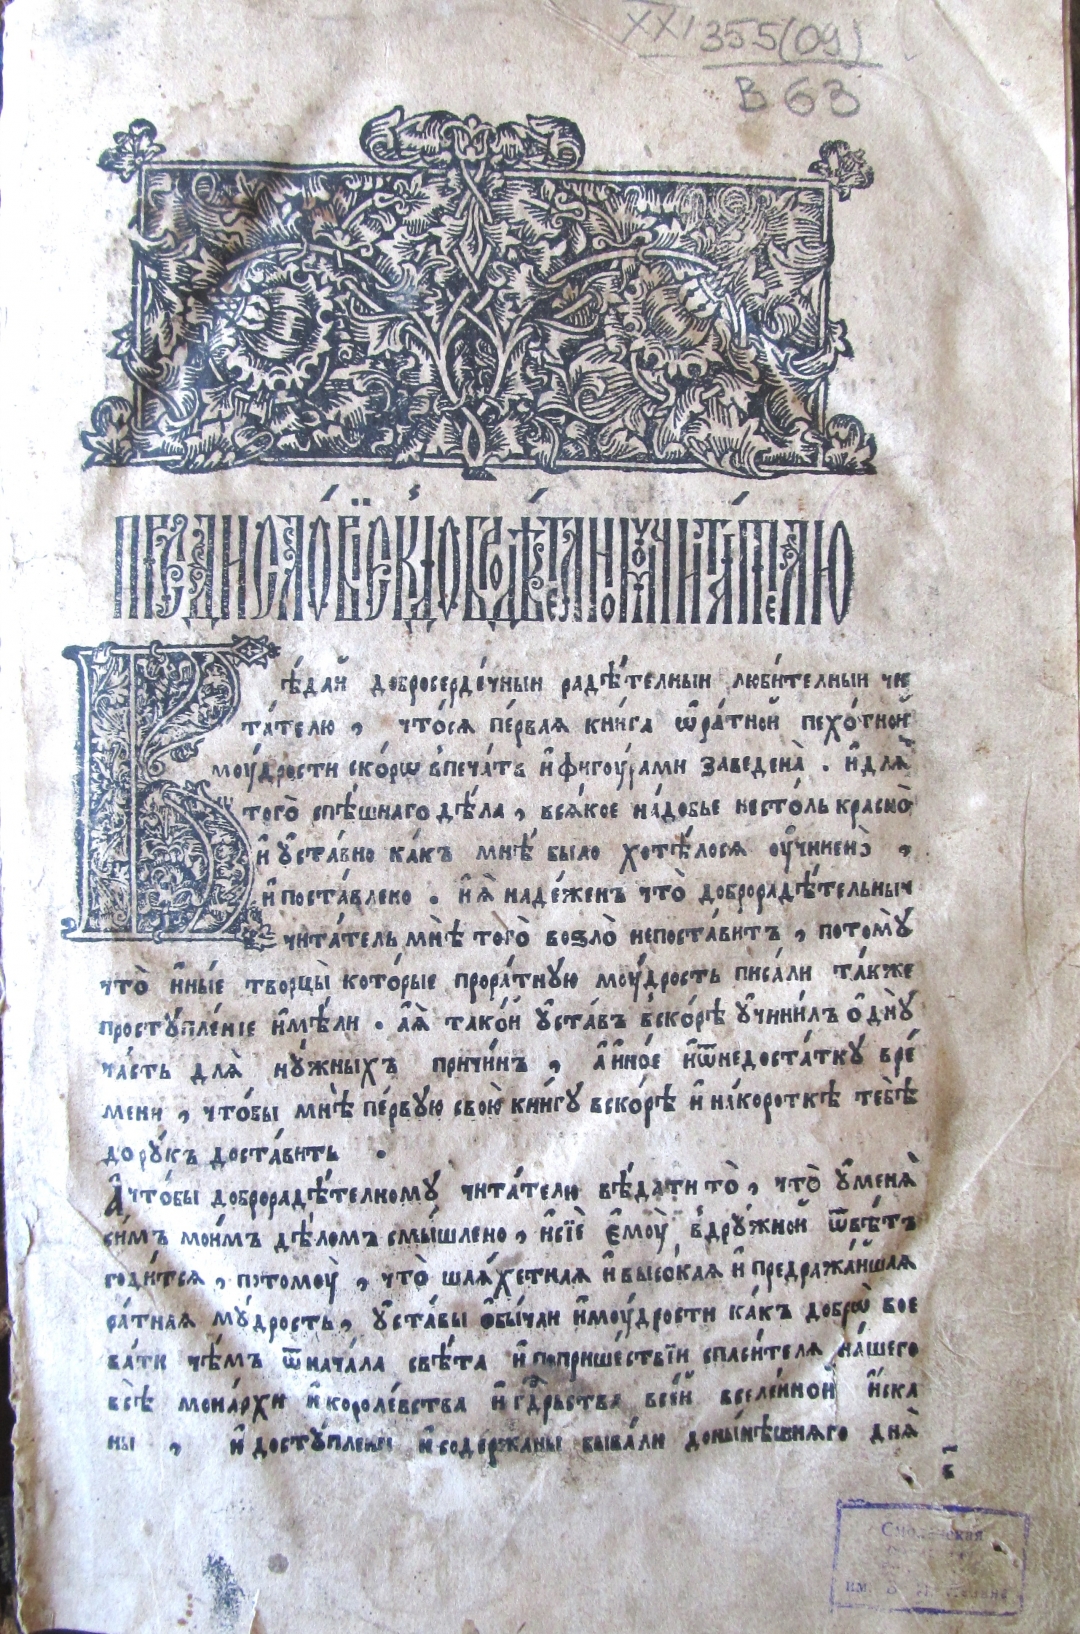 XXI 355(09)
В 63
ПРЕДИСЛОВЇЕ КДОБРОДѢТЕЛНОМꙋ ЧИТАТЕЛЮ
Вѣдай добросердечныи радѣтелныи любителныи чи
тателю, чтося первая книга ѿратной пехотной
моудрости скорѡ впечать и҆фигоурами заведена̀. и҆для̀
того̀ спѣшнаго дѣла, всякое надобье нестоль красно̀
и҆ ꙋ҆ставно какъ мнѣ было хотѣлося оу҆чинено̀,
и҆поставлено. и҆ я҆ надеженъ что̀ доброрадѣтельныи
читатель мнѣ того̀ воѕло̀ непоставитъ, потомꙋ
что̀ и҆ныѐ творцы̀ которые проратнꙋю моудрость писали также
простꙋпленїе и҆мѣли. а҆я҆ такой ꙋ҆ставъ вскорѣ ꙋ҆чинилъ о҆днꙋ̀
часть для̀ нꙋжныхъ причинъ, а҆ и҆ное и҆ѿнедостаткꙋ вре
мени, чтобы мнѣ первꙋю свою книгꙋ вскорѣ и҆ накороткѣ тебѣ
дорꙋкъ доставить.
А҆чтобы доброрадѣтелномꙋ читателю вѣдати то̀, что̀ ꙋ҆меня̀
симъ моимъ дѣломъ смышлено, и҆сїѐ е҆моу̀ вдрꙋжной ѿвѣтъ
годится, потомоу̀, что̀ шляхетная и҆высокая и҆ предражайшая
ратная мꙋдрость, ꙋ҆ставы о҆бычаи и҆моудрости какъ добрѡ вое
вати чѣмъ ѿначала свѣта и҆ попришествїи спасителя нашего
всѣ монархи и҆ королевства и҆ гдⷭ҇рьства всей вселенной и҆ска
ны, и҆ достꙋплены и҆ содержаны бывали донынѣшняго дня̀
в҃
Смоленская
им. В. И. Ленина